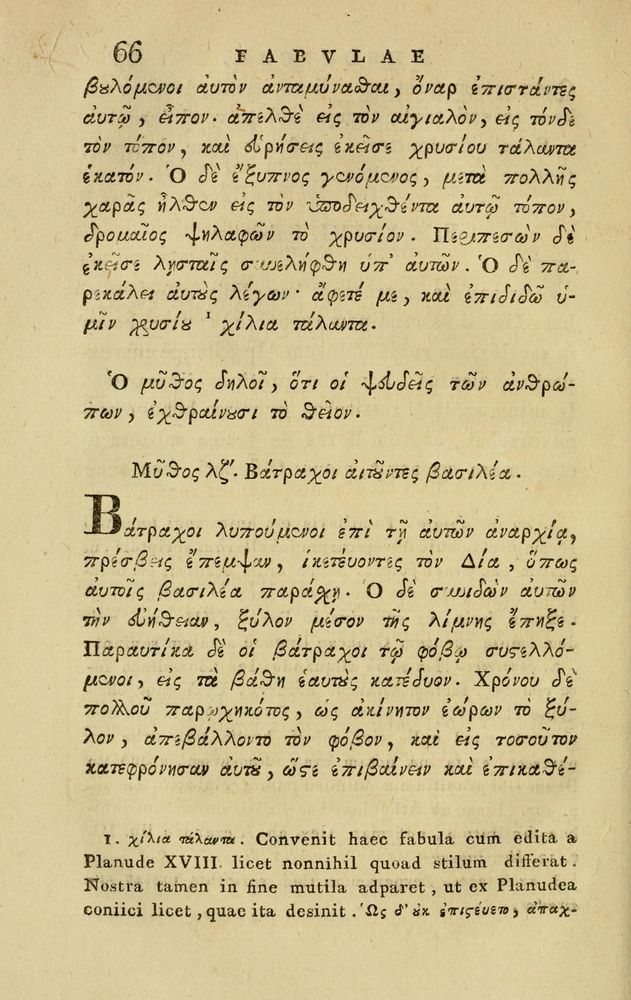 66 FABVLAE
βουλόμενοι ἀυτὸν ἀνταμύναθαι, ὄναρ ἐπιστάντες
ἀυτῷ, ἐῖπον. ἀπελθὲ εἰς τὸν ἀιγιαλὸν, εἰς τόνδε
τὸν τόπον, καὶ ἑυρήσεις ἐκεῖσε χρυσίου τάλαντα
ἑκατόν. Ὁ δὲ ἔξυπνος γενόμενος, μετὰ πολλῆς
χαρᾶς ἦλθεν εἰς τὸν ὑποδειχθέντα ἀυτῷ τόπον,
δρομαῖος ψηλαφῶν τὸ χρυσίον. Περιπεσὼν δὲ
ἐκεῖσε λῃσταῖς συνελήφθη ὑπ' αὐτῶν. Ὁ δὲ πα-
ρεκάλει ἀυτοὺς λέγων· ἄφετέ με, καὶ ἐπιδιδῶ ὑ-
μῖν χρυσίου 1 χίλια τάλαντα.
Ὁ μῦθος δηλοῖ, ὅτι οἱ ψευδεῖς τῶν ἀνθρώ-
πων, ἐχθραίνουσι τὸ θεῖον.
Μῦθος λζʹ. Βάτραχοι ἀιτοῦντες βασιλέα.
Βάτραχοι λυπούμενοι ἐπὶ τῇ ἀυτῶν ἀναρχίᾳ,
πρέσβεις ἔπεμψαν, ἱκετέυοντες τὸν Δία, ὅπως
ἀυτοῖς βασιλέα παράσχῃ. Ὁ δὲ συνιδὼν ἀυτῶν
τὴν ἐυήθειαν, ξύλον μέσον τῆς λίμνης ἔπηξε.
Παραυτίκα δὲ οἱ βάτραχοι τῷ φόβῳ συστελλό-
μενοι, εἰς τὰ βάθη ἑαυτοὺς κατέδυον. Χρόνου δὲ
πολλοῦ παρῳχηκότος, ὡς ἀκίνητον ἑώρων τὸ ξύ-
λον, ἀπεβάλλοντο τὸν φόβον, καὶ εἰς τοσοῦτον
κατεφρόνησαν ἀυτοῦ, ὥστε ἐπιβαίνειν καὶ ἐπικαθέ-
1. χίλια τάλαντα. Convenit haec fabula cum edita a
Planude XVIII. licet nonnihil quoad stilum differat.
Nostra tamen in fine mutila adparet, ut ex Planudea
coniici licet, quae ita desinit. Ὡς δ' οὐκ ἐπιστέυετο, ἀπαχ-